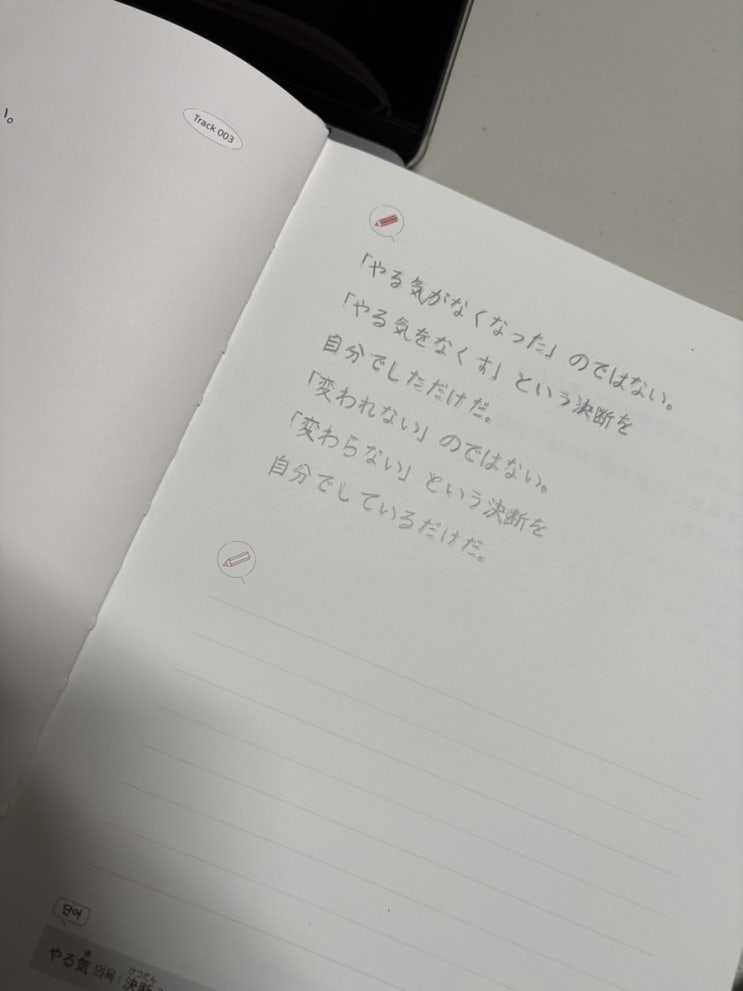 い。
Track 003
「やる気がなくなった」のではない。
「やる気をなくす」という決断を
自分でしただけだ。
「変われない」のではない。
「変わらない」という決断を
自分でしているだけだ。
단어
やる気 의욕 | 決断
き けつだん